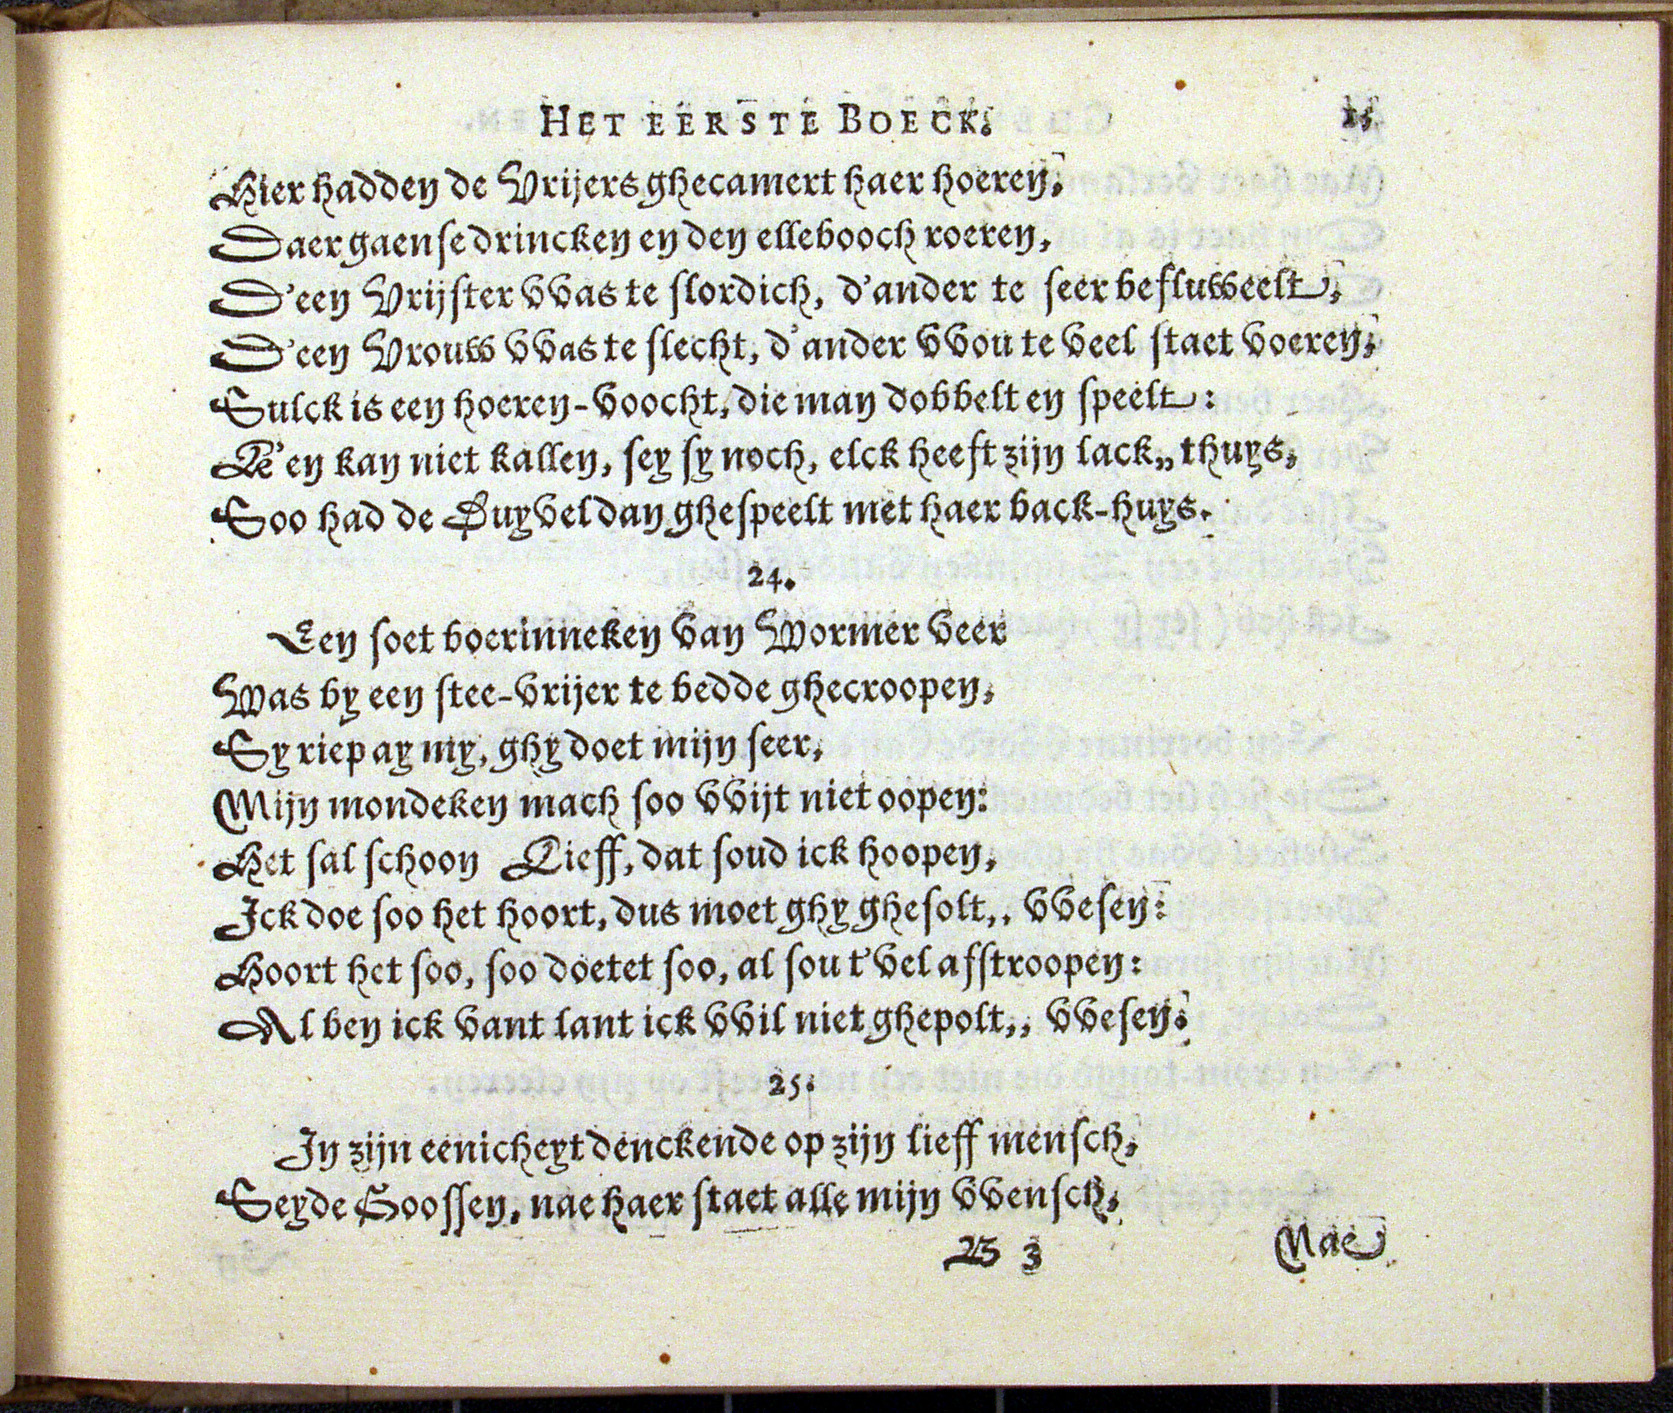 HET EERSTE BOECK.
Hier hadden de Vrijers ghecamert haer hoeren,
Daer gaen se drincken en den ellebooch roeren,
D'een Vrijster vvas te slordich, d'ander te seer befluweelt,
D'een Vrouw vvas te slecht, d'ander vvou te veel staet voeren,
Sulck is een hoeren-voocht, die man dobbelt en speelt:
en kan niet kallen, sey sy noch, elck heeft zijn lack,, thuys,
Soo had de Duyvel dan ghespeelt met haer back-huys.
24.
Een soet boerinneken van Wormer veer
Was by een stee-vrijer te bedde ghecroopen,
Sy riep ay my, ghy doet mijn seer,
Mijn mondeken mach soo vvijt niet oopen:
Het sal schoon Lieff, dat soud ick hoopen,
Ick doe soo het hoort, dus moet ghy ghesolt,, vvesen:
Hoort het soo, soo doetet soo, al sou t'vel afstroopen:
Al ben ick vant lant ick vvil niet ghepolt,, vvesen.
25.
In zijn eenicheyt denckende op zijn lieff mensch,
Seyde Goossen, nae haer staet alle mijn vvensch,
B 3
Nae